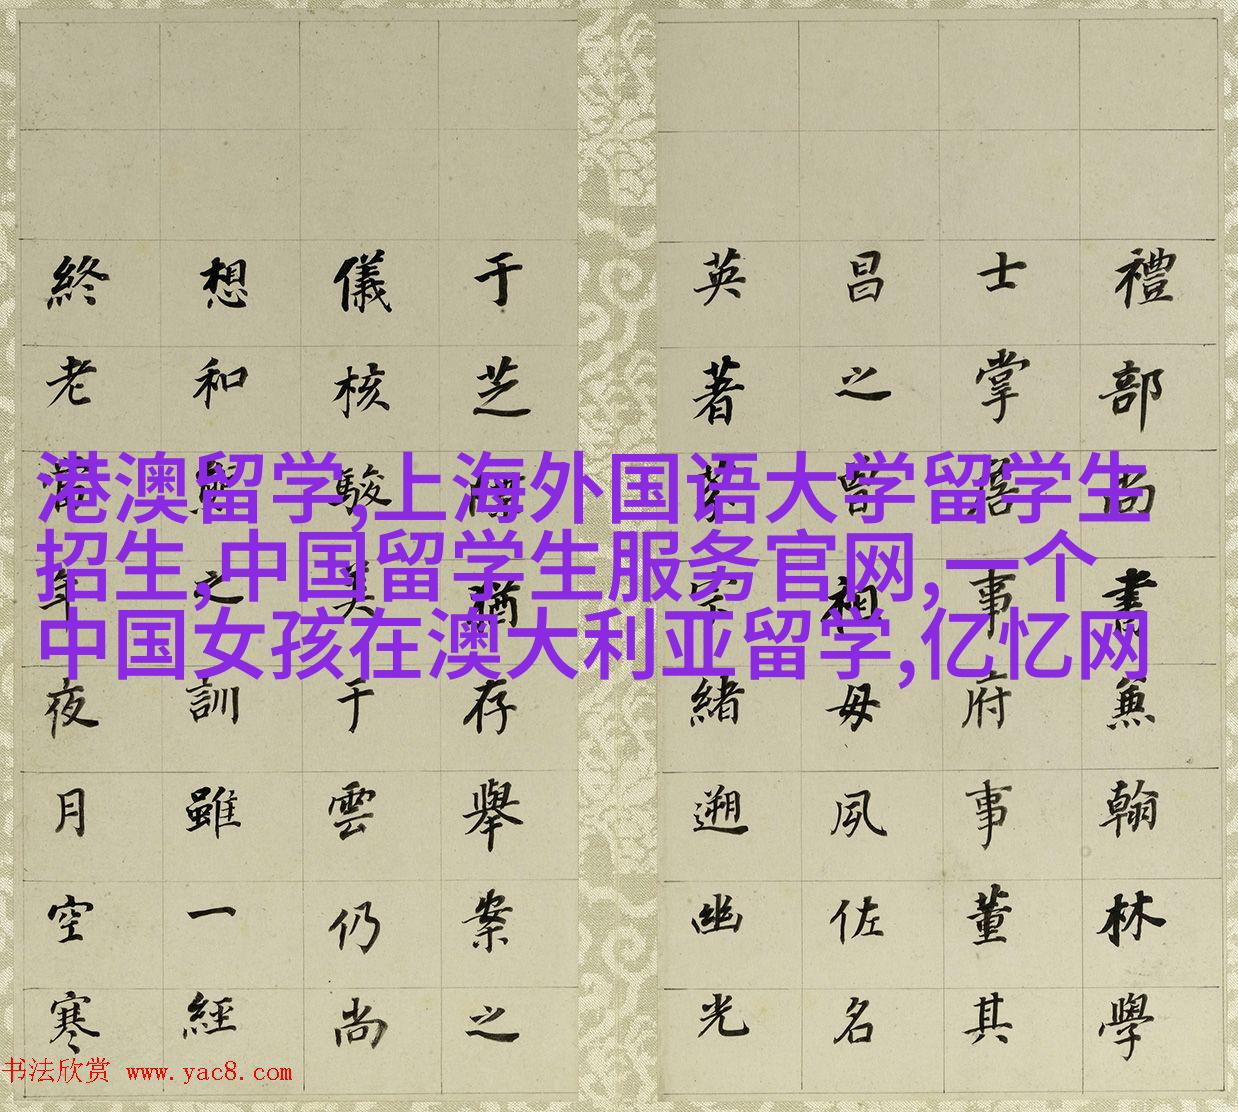 港澳留学,上海外国语大学留学生
招生,中国留学生服务官网,一个
中国女孩在澳大利亚留学,亿忆网
禮部尚書兼翰林學
士掌詹事府事董其
昌之曾祖母夙佐名
英著緒遡幽光
于芝猶存舉案之
儀核駿美于雲仍尚
想和熊之訓雖一經
終老年夜月空寒
书法欣赏 www.yac8.com